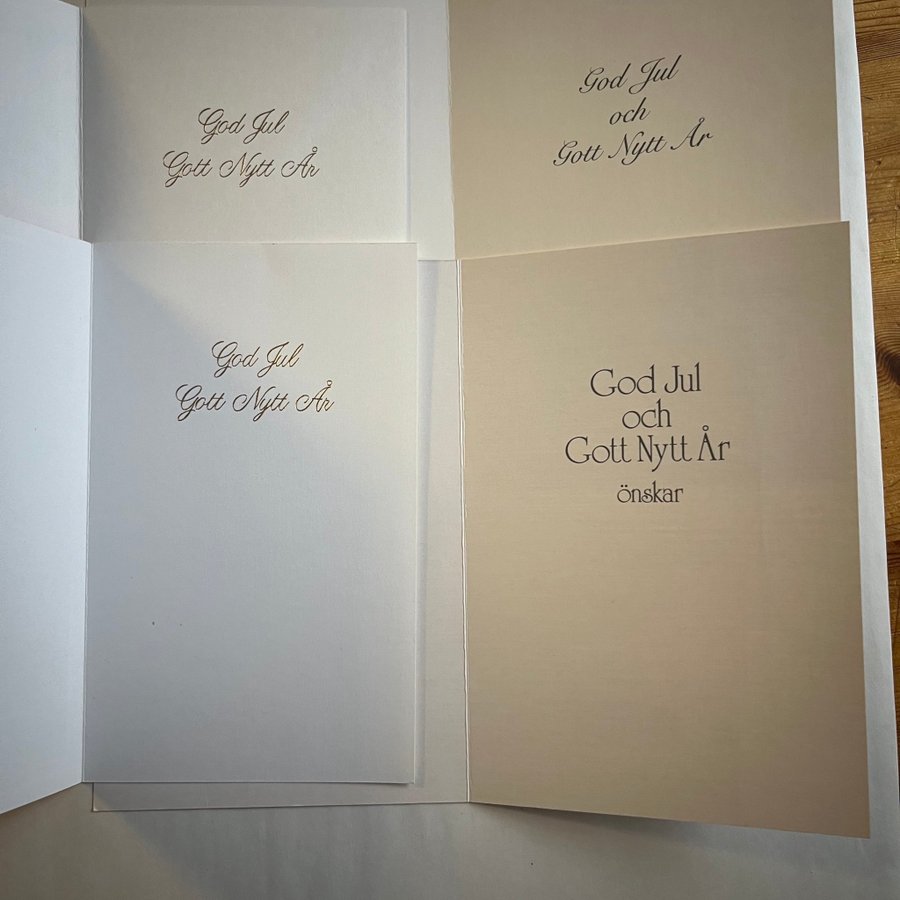 God Jul
Gott Nytt År
God Jul
och
Gott Nytt År
God Jul
Gott Nytt År
God Jul
och
Gott Nytt År
önskar